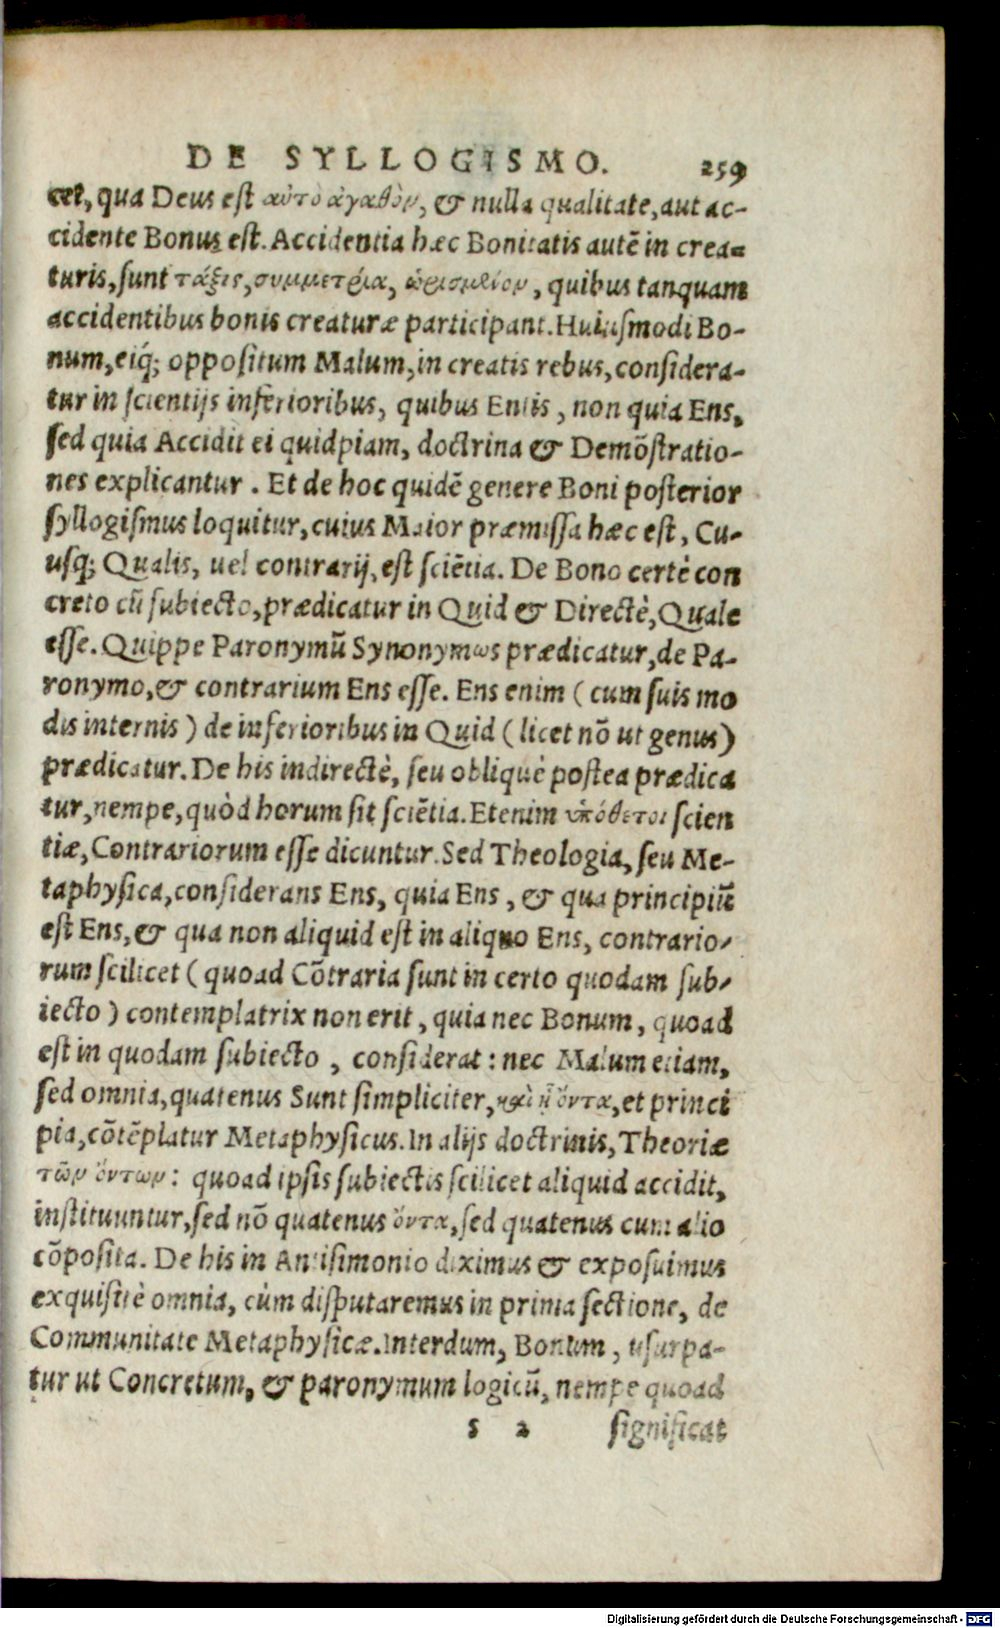 DE SYLLOGISMO. 259
cet, qua Deus est αὐτὸ ἀγαθὸν, & nulla qualitate, aut ac-
cidente Bonus est. Accidentia hæc Bonitatis autē in crea-
turis, sunt τάξις, συμμετρία, ὡρισμένον, quibus tanquam
accidentibus bonis creaturæ participant. Huiusmodi Bo-
num, eiq́; oppositum Malum, in creatis rebus, considera-
tur in scientijs inferioribus, quibus Entis, non quia Ens,
sed quia Accidit ei quidpiam, doctrina & Demōstratio-
nes explicantur. Et de hoc quidē genere Boni posterior
syllogismus loquitur, cuius Maior præmissa hæc est, Cu-
usq; Qualis, uel contrarij, est sciētia. De Bono certè con
creto cū subiecto, prædicatur in Quid & Directè, Quale
esse. Quippe Paronymū Synonymως prædicatur, de Pa-
ronymo, & contrarium Ens esse. Ens enim (cum suis mo
dis internis) de inferioribus in Quid (licet nō ut genus)
prædicatur. De his indirectè, seu obliquè postea prædica
tur, nempe, quòd horum sit sciētia. Etenim ὑπόθετοι scien
tiæ, Contrariorum esse dicuntur. Sed Theologia, seu Me-
taphysica, considerans Ens, quia Ens, & qua principiū
est Ens, & qua non aliquid est in aliquo Ens, contrario-
rum scilicet (quoad Cōtraria sunt in certo quodam sub-
iecto) contemplatrix non erit, quia nec Bonum, quoad
est in quodam subiecto, considerat: nec Malum etiam,
sed omnia, quatenus Sunt simpliciter, καὶ ᾗ ὄντα, et princi
pia, cōtēplatur Metaphysicus. In alijs doctrinis, Theoriæ
τῶν ὄντων: quoad ipsis subiectis scilicet aliquid accidit,
instituuntur, sed nō quatenus ὄντα, sed quatenus cum alio
cōposita. De his in Antisimonio diximus & exposuimus
exquisitè omnia, cùm disputaremus in prima sectione, de
Communitate Metaphysicæ. Interdum, Bonum, usurpa-
tur ut Concretum, & paronymum logicū, nempe quoad
s 2 significat
Digitalisierung gefördert durch die Deutsche Forschungsgemeinschaft - DFG